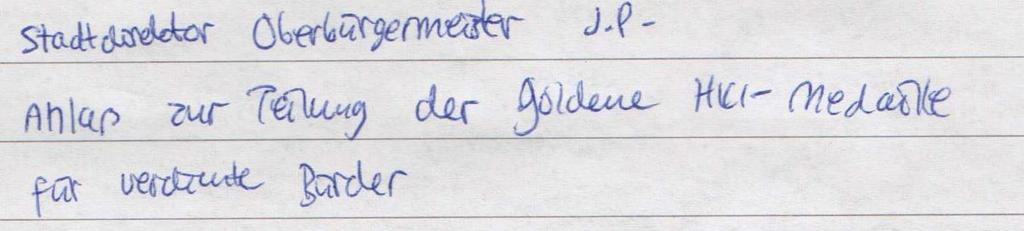 Stadtdirektor Oberbürgermeister J.P-
Anlaß zur Teilung der goldene HKI-Medaille
für verdiente